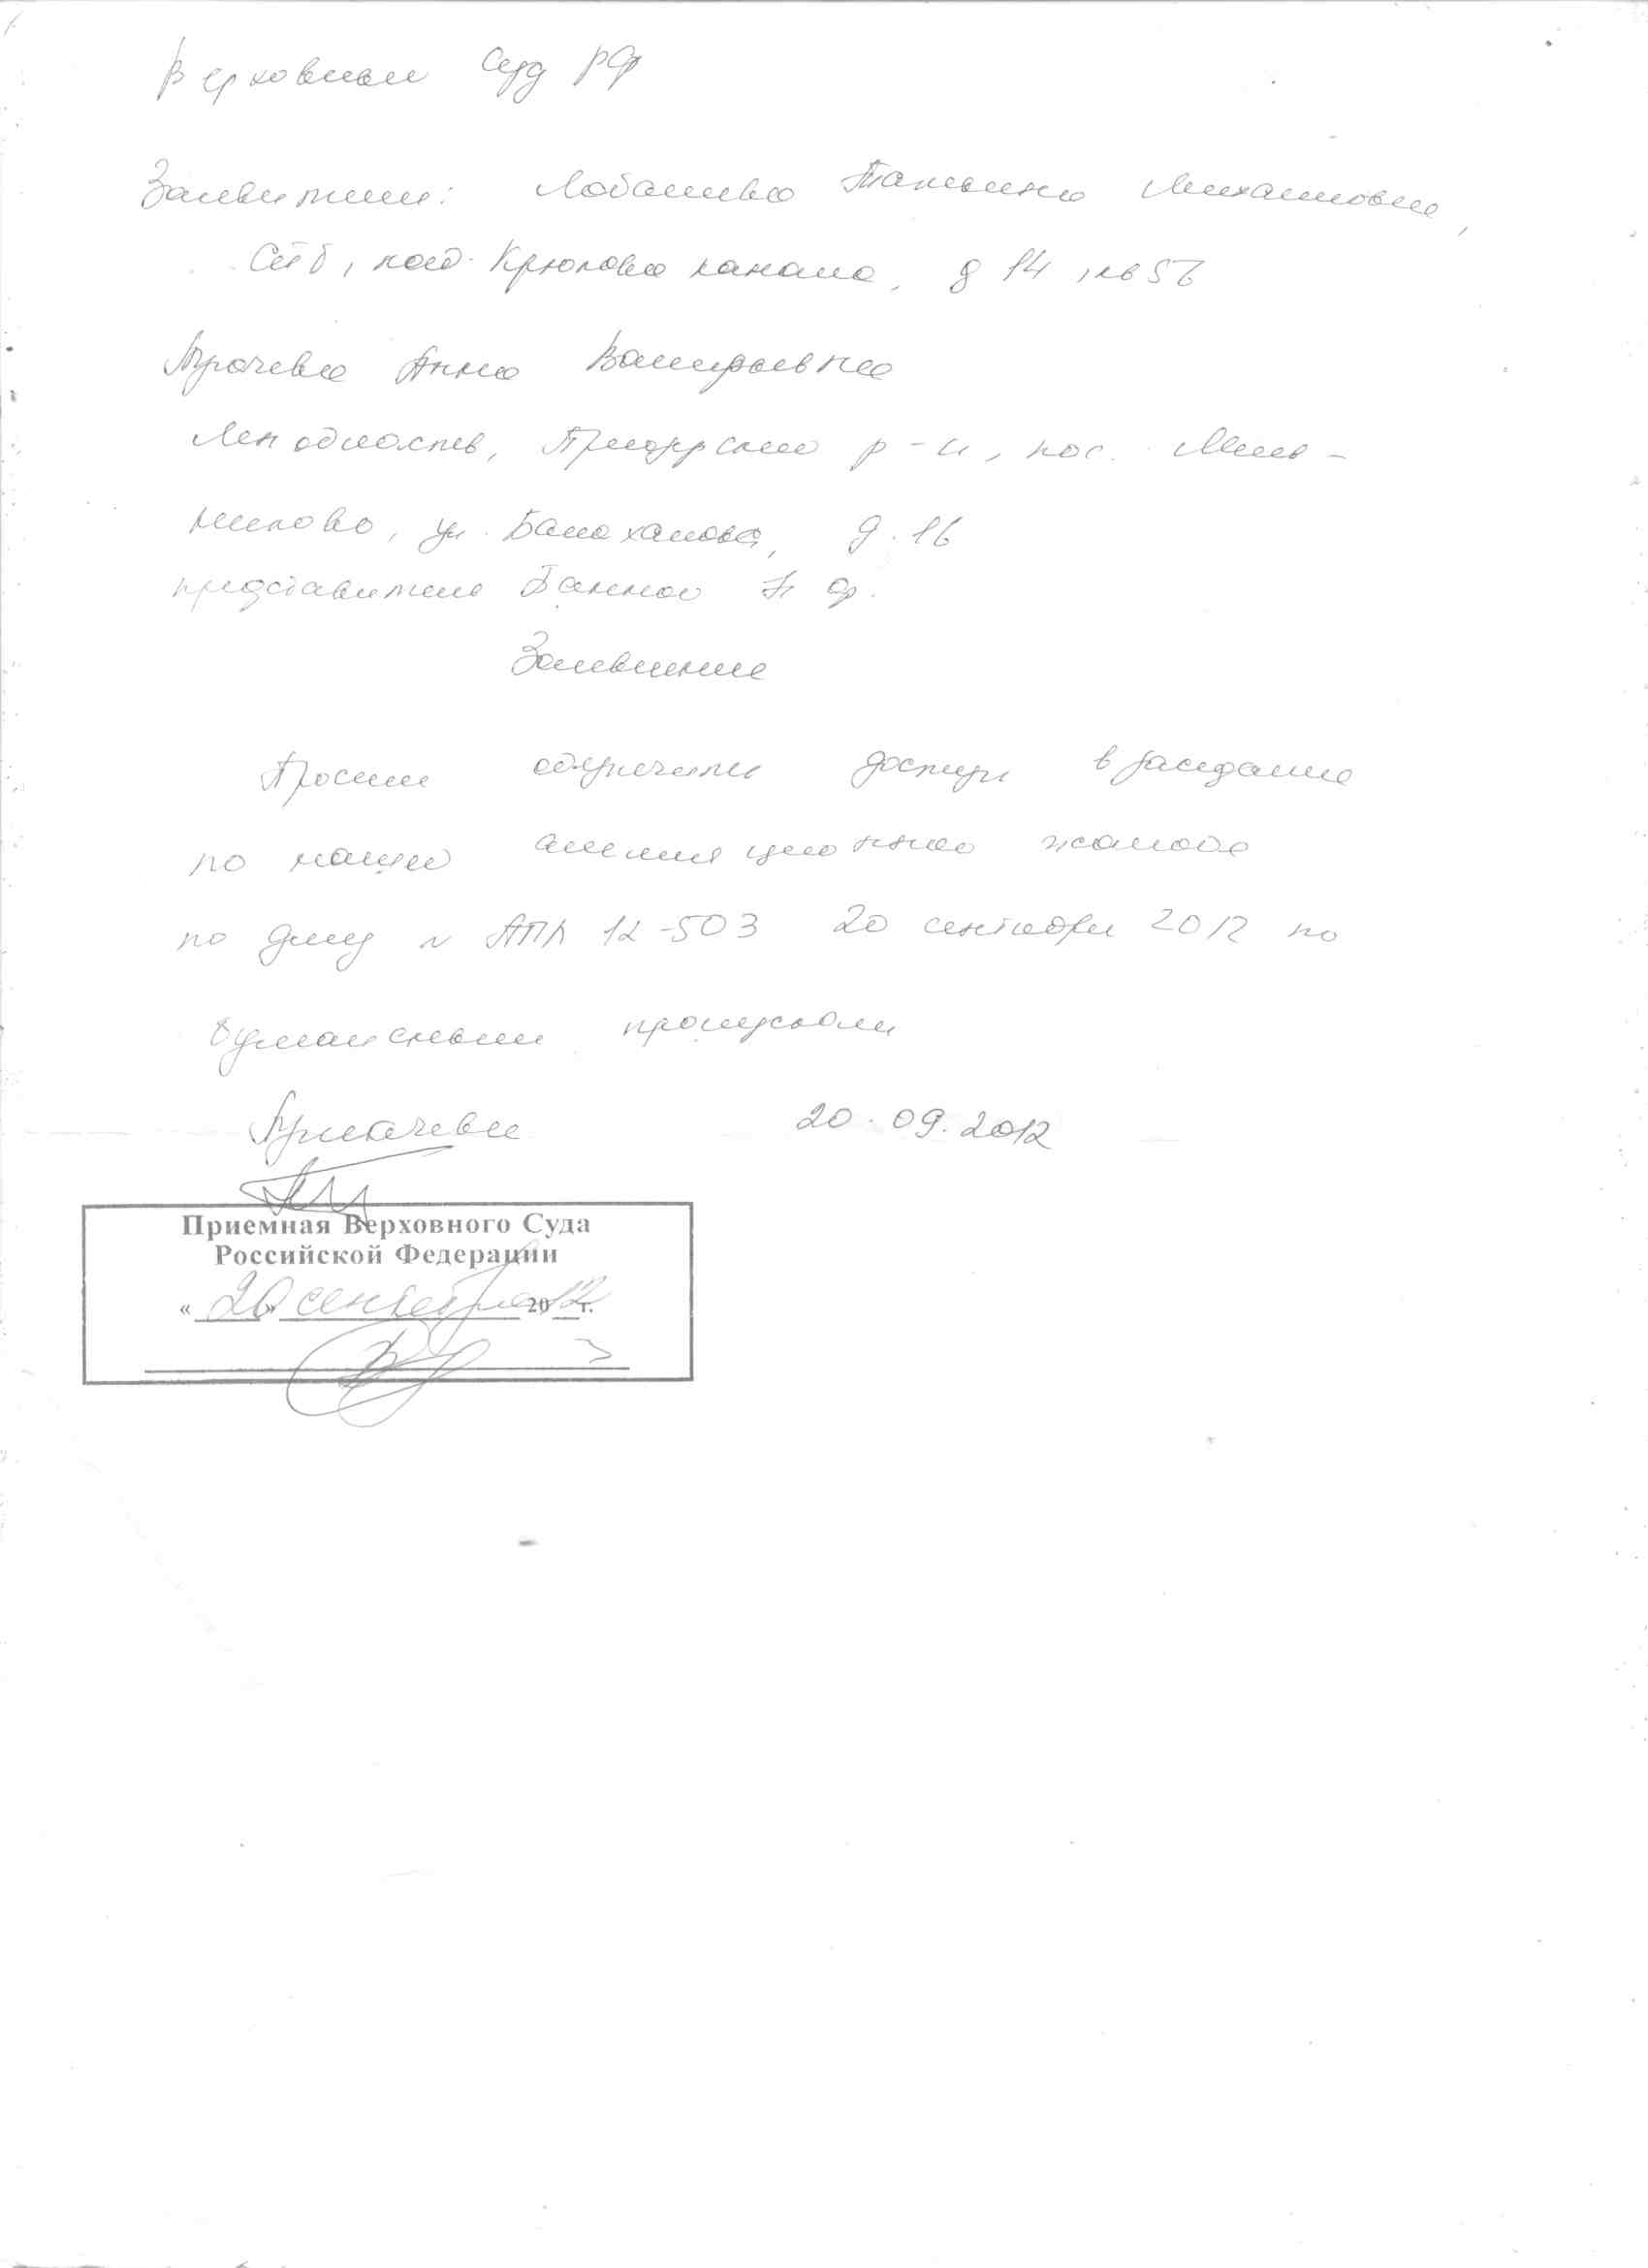 Верховный Суд РФ
Заявители: Лобанова Татьяна Михайловна,
СПб, наб. Крюкова канала, д 14, кв 56
Трачева Анна Валерьевна
Лен область, Приозерский р-н, пос. Мель-
никово, ул. Балаханова, д. 16
представитель
Заявление
Просим обеспечить доступ в заседание
по нашей апелляционной жалобе
по делу № АПЛ 12-503 20 сентября 2012 по
пропускам
20.09.2012
Приемная Верховного Суда
Российской Федерации
«20» сентября 2012 г.